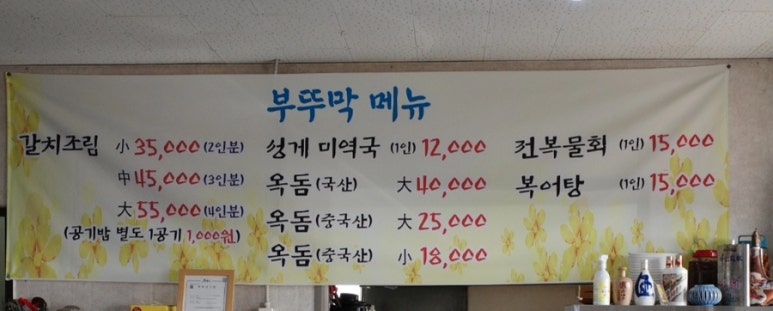 부뚜막 메뉴
갈치조림 小 35,000 (2인분)
中 45,000 (3인분)
大 55,000 (4인분)
(공기밥 별도 1공기 1,000원)
성게 미역국 (1인) 12,000
옥돔 (국산) 大 40,000
옥돔 (중국산) 大 25,000
옥돔 (중국산) 小 18,000
전복물회 (1인) 15,000
복어탕 (1인) 15,000